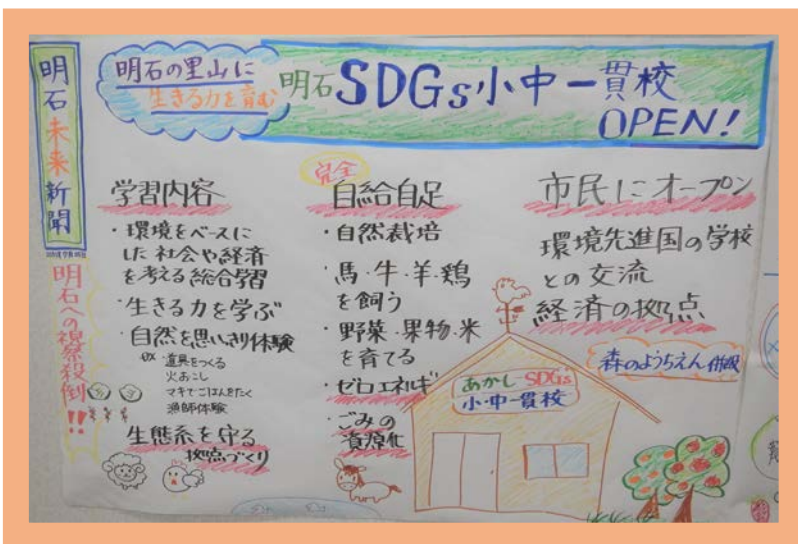 明石未来新聞
明石への視察殺到!!
明石の里山に
生きる力を育む
明石SDGs小中一貫校
OPEN!
学習内容
・環境をベースに
した社会や経済
を考える総合学習
・生きる力を学ぶ
・自然を思いっきり体験
ex 道具をつくる
火おこし
マキでごはんをたく
漁師体験
生態系を守る
拠点づくり
完全
自給自足
・自然栽培
・馬・牛・羊・鶏
を飼う
・野菜・果物・米
を育てる
・ゼロエネルギー
・ごみの
資源化
市民にオープン
環境先進国の学校
との交流
経済の拠点
森のようちえん併設
あかしSDGs
小・中一貫校